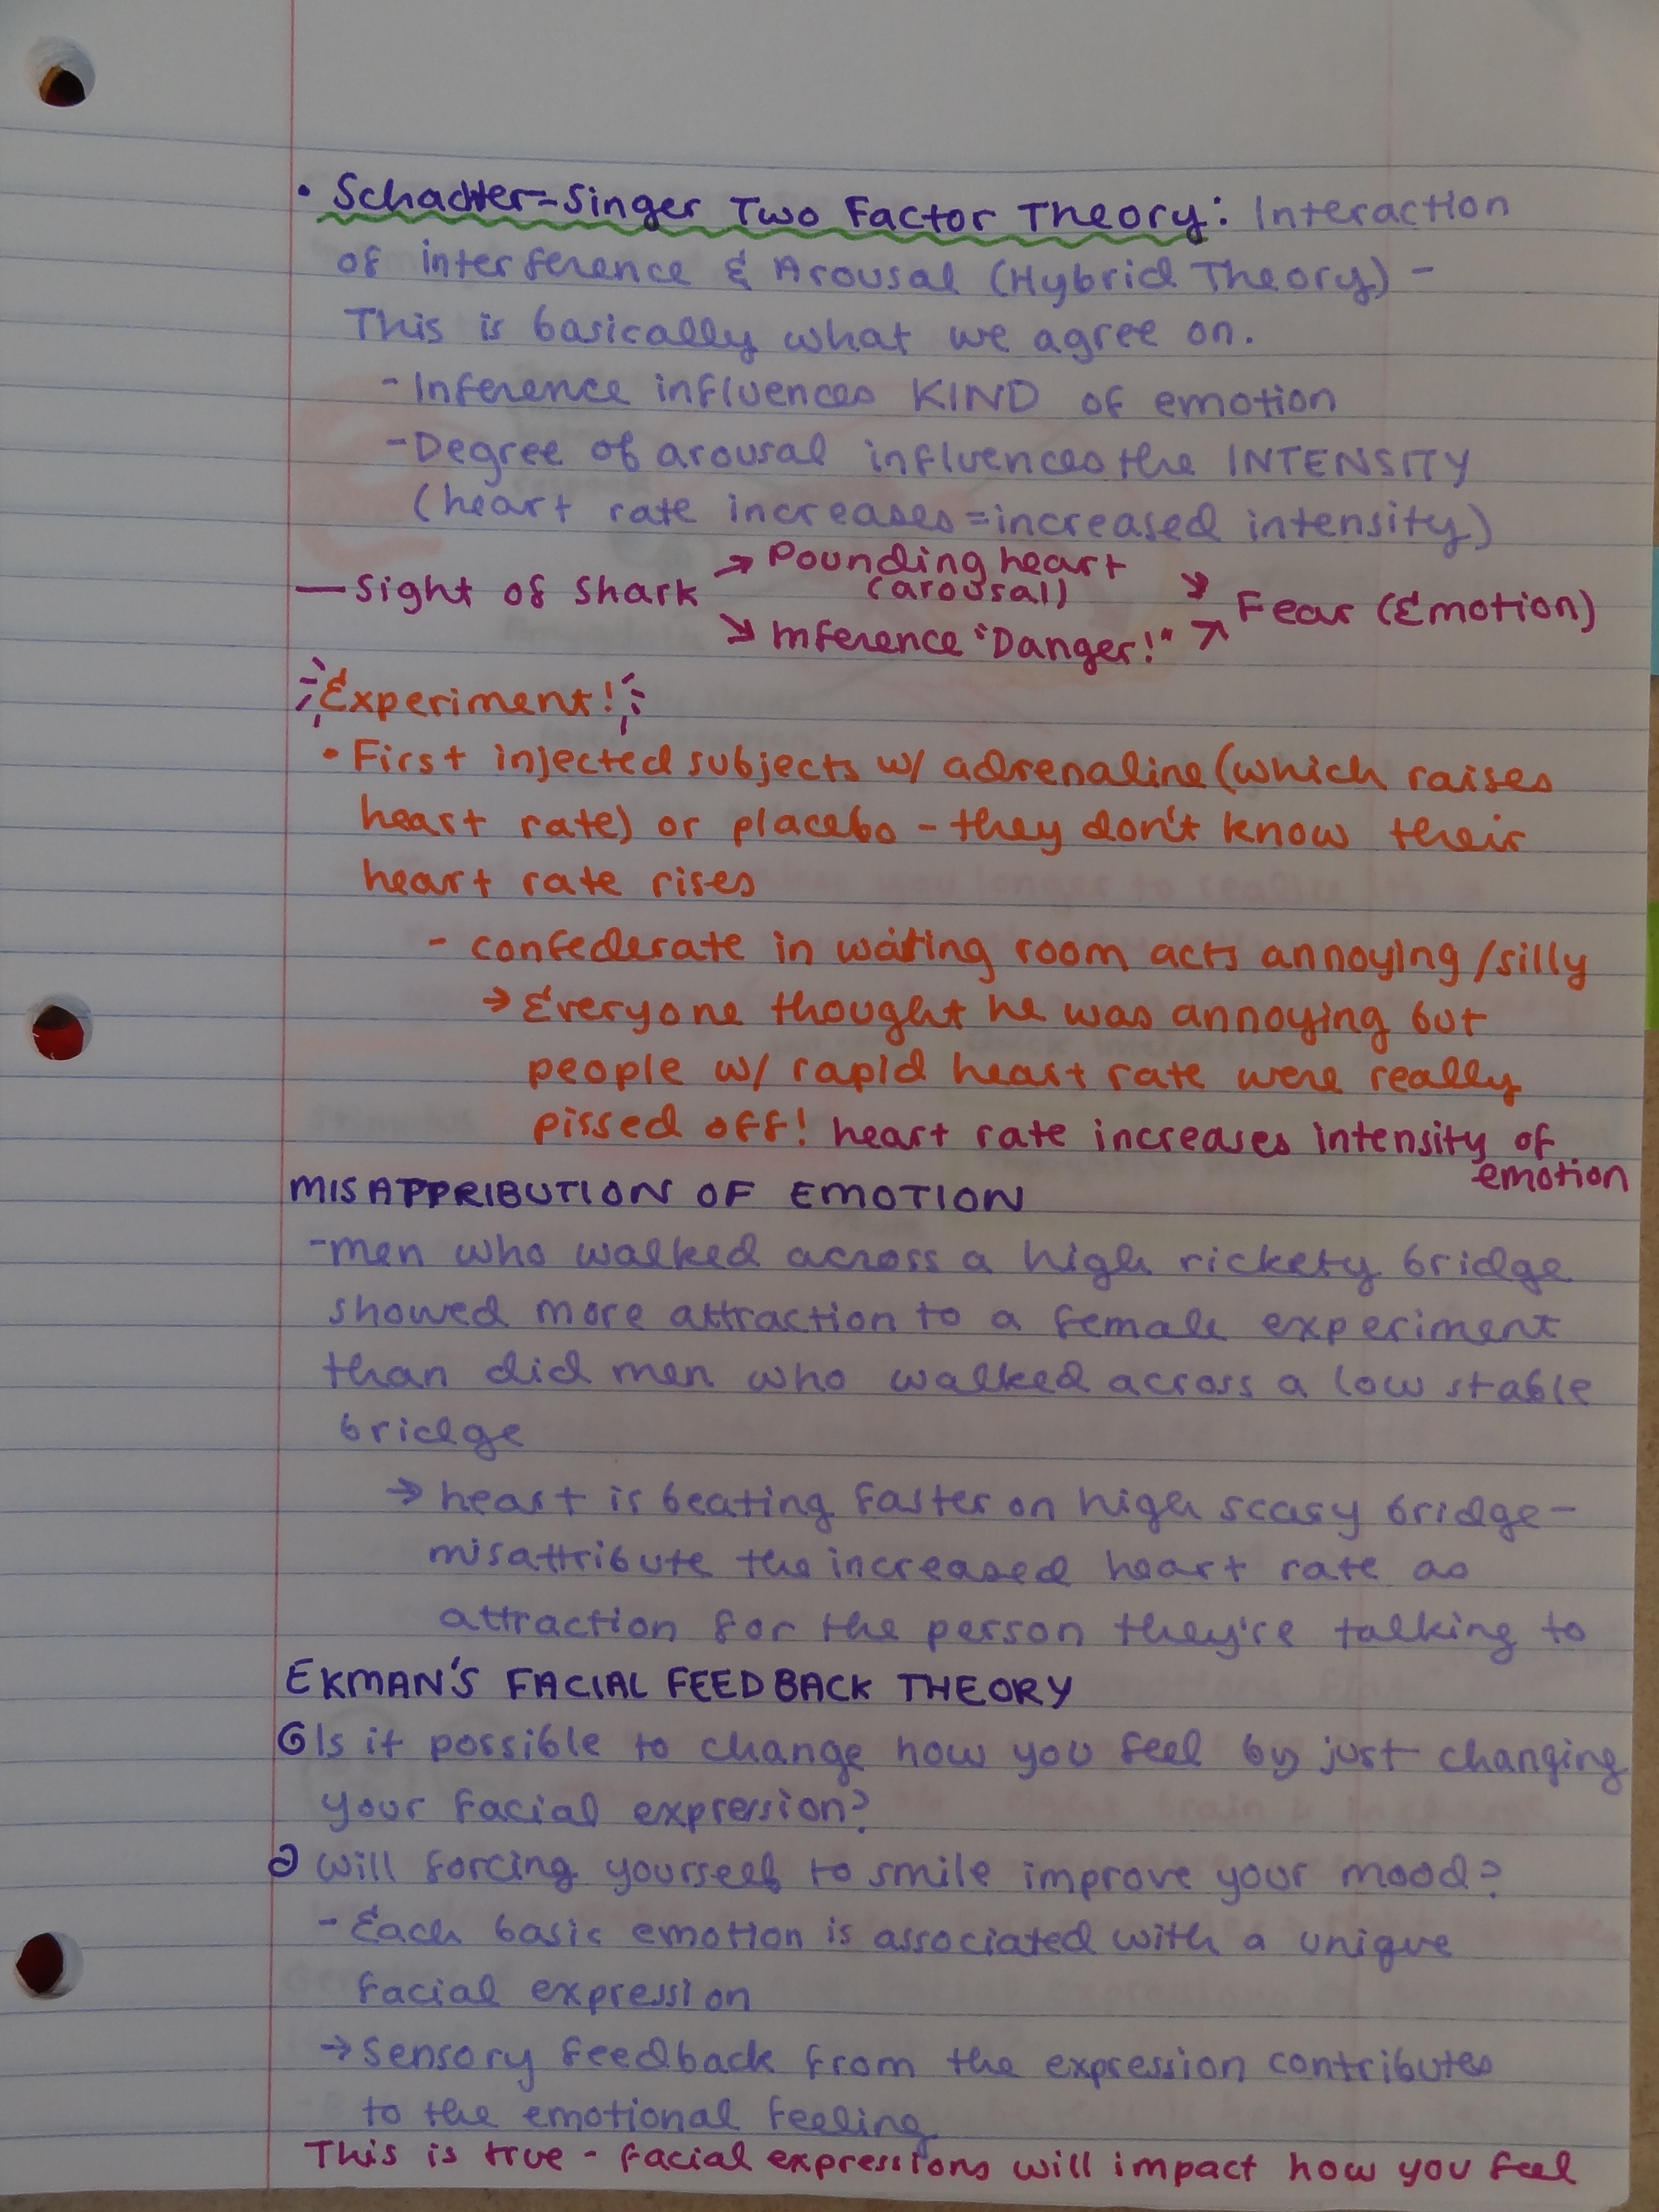 • Schachter-Singer Two Factor Theory: Interaction
of interference & Arousal (Hybrid Theory) -
This is basically what we agree on.
- Inference influences KIND of emotion
- Degree of arousal influences the INTENSITY
(heart rate increases = increased intensity)
— Sight of Shark → Pounding heart (arousal) → Fear (Emotion)
→ Inference "Danger!" →
Experiment!
• First injected subjects w/ adrenaline (which raises
heart rate) or placebo - they don't know their
heart rate rises
- confederate in waiting room acts annoying/silly
→ Everyone thought he was annoying but
people w/ rapid heart rate were really
pissed off! heart rate increases intensity of
emotion
MISATTRIBUTION OF EMOTION
- men who walked across a high rickety bridge
showed more attraction to a female experiment
than did men who walked across a low stable
bridge
→ heart is beating faster on high scary bridge -
misattribute the increased heart rate as
attraction for the person they're talking to
EKMAN'S FACIAL FEEDBACK THEORY
Is it possible to change how you feel by just changing
your facial expression?
Will forcing yourself to smile improve your mood?
- Each basic emotion is associated with a unique
facial expression
→ Sensory feedback from the expression contributes
to the emotional feeling
This is true - facial expressions will impact how you feel